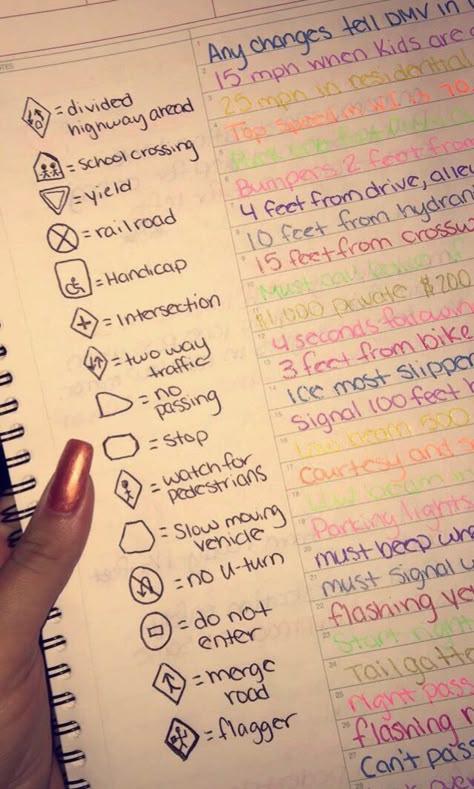 NOTES
= divided
highway ahead
= school crossing
= yield
= railroad
= Handicap
= Intersection
= two way
traffic
= no
passing
= stop
= watch for
pedestrians
= slow moving
vehicle
= no U-turn
= do not
enter
= merge
road
= flagger
Any changes tell DMV in
15 mph when kids are
25 mph in residential
Top speed in WI is 70
Bumpers 2 feet from
4 feet from drive, alley
10 feet from hydran
15 feet from crossw
Must call
$1,000 private $200
4 seconds following
3 feet from bike
ice most slipper
Signal 100 feet
Low beam 500
Courtesy and
Low beam in
Parking lights
must beep
must signal
flashing ye
Start right
Tailgatte
right pass
flashing
Can't pass